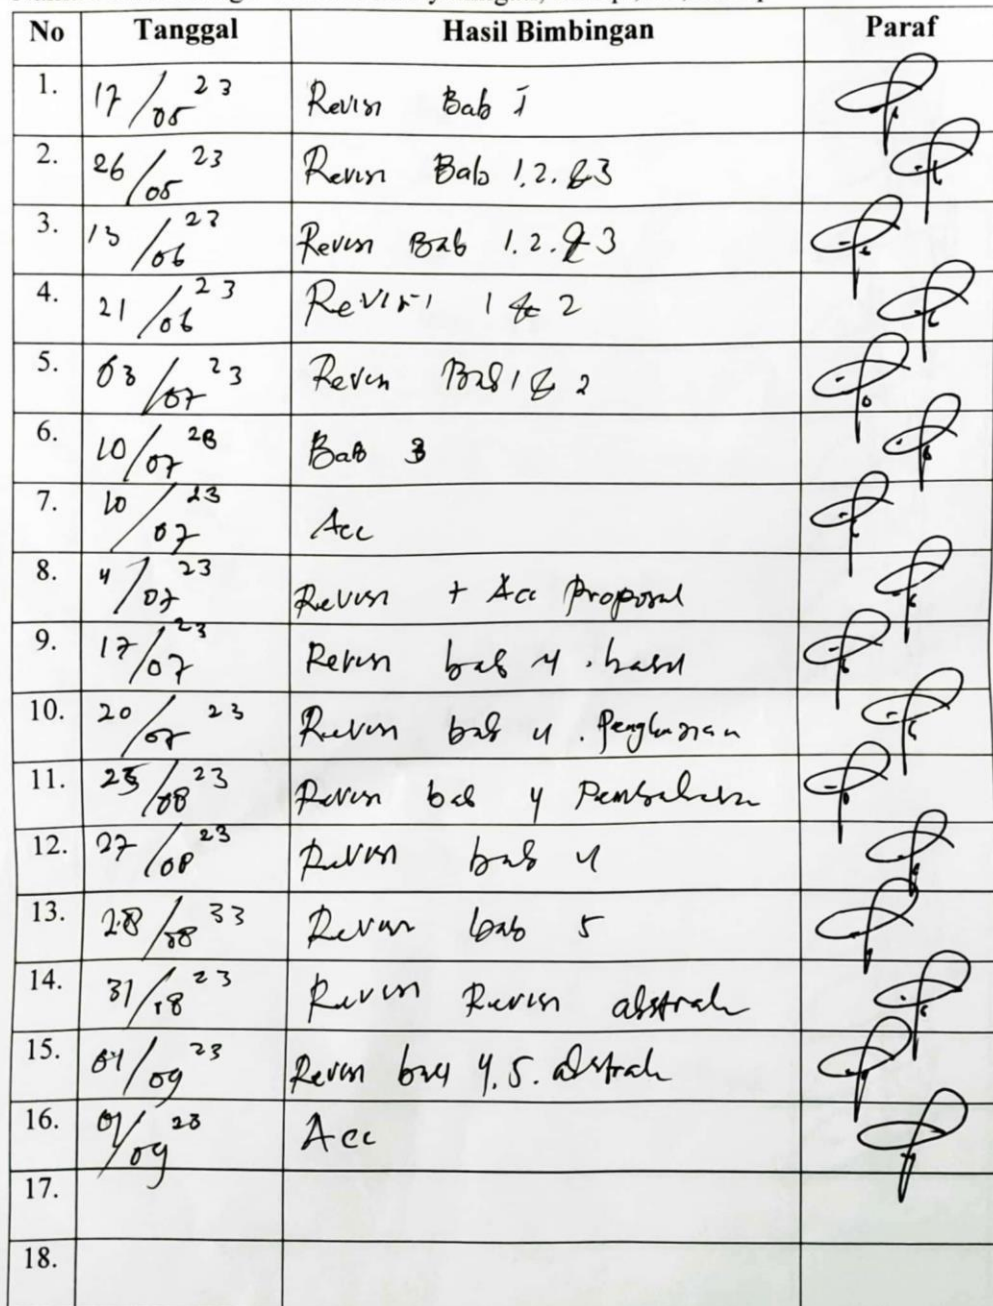 No Tanggal Hasil Bimbingan Paraf
1. 17/05 23 Revisi Bab I
2. 26/05 23 Revisi Bab 1.2.&3
3. 13/06 23 Revisi Bab 1.2.&3
4. 21/06 23 Revisi 1 & 2
5. 03/07 23 Revisi Bab 1 & 2
6. 10/07 23 Bab 3
7. 10/07 23 Acc
8. 4/07 23 Revisi + Acc Proposal
9. 17/07 23 Revisi bab 4. hasil
10. 20/07 23 Revisi bab 4.
11. 25/08 23 Revisi bab 4 Pembahasan
12. 27/08 23 Revisi bab 4
13. 28/08 33 Revisi bab 5
14. 31/08 23 Revisi Revisi abstrak
15. 23 Revisi bab 4.5. abstrak
16. 23 Acc
17.
18.